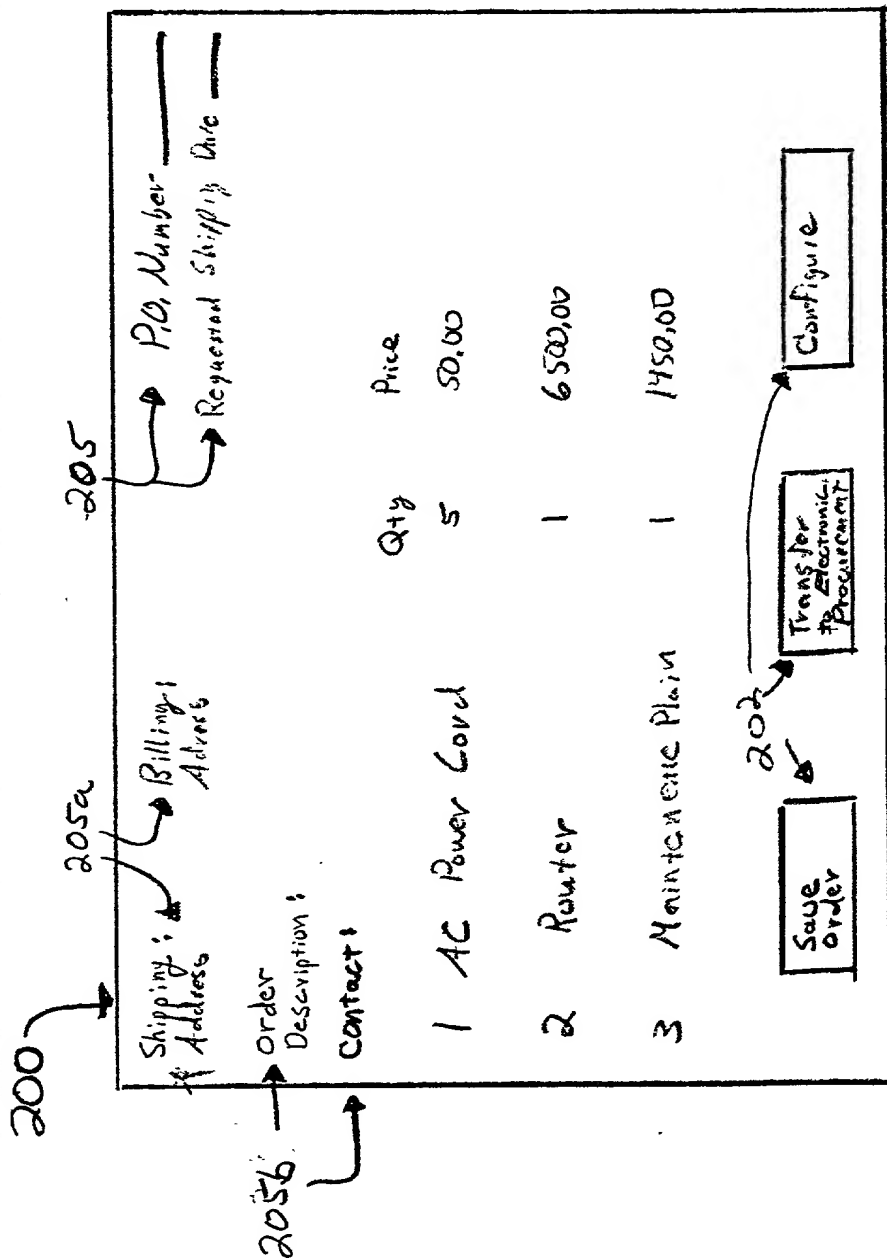 200
205a
205
Shipping: Address
Billing: Adress
P.O. Number
Requested Shipping Date
2056
Order Description:
Contact:
Qty Price
1 AC Power Cord 5 50.00
2 Router 1 6500.00
3 Maintenence Plain 1 1450.00
202
Save Order
Transfer to Electronic Procurement
Configure